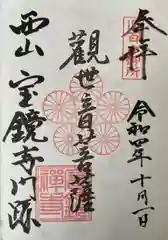 奉拝
令和四年十月一日
觀世音菩薩
西山宝鏡寺門跡